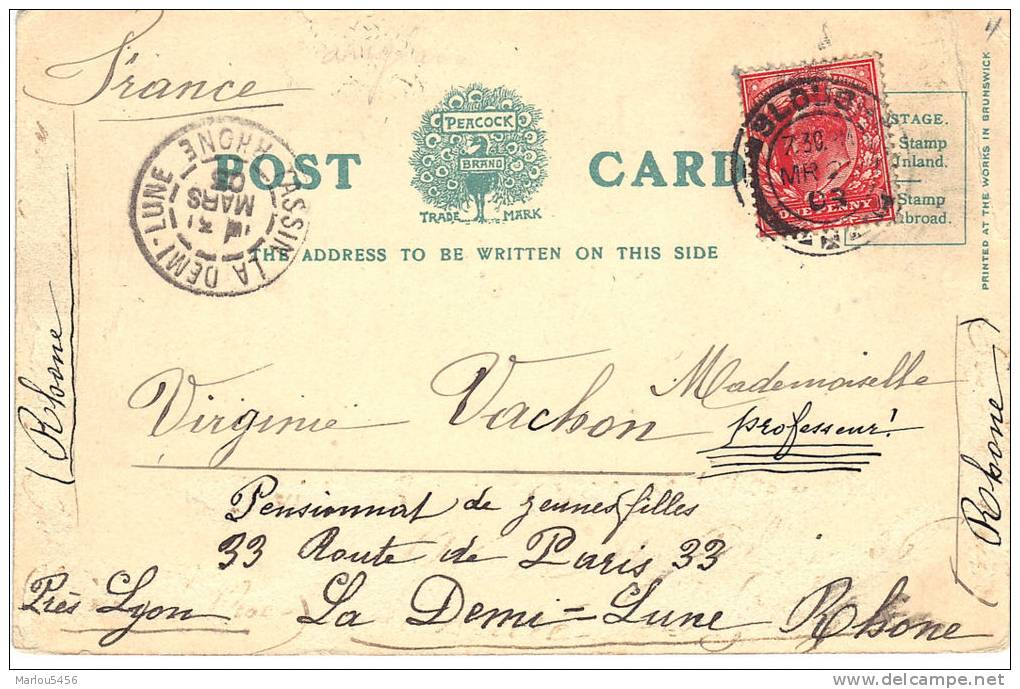 France
PEACOCK
BRAND
POST CARD
TRADE MARK
THE ADDRESS TO BE WRITTEN ON THIS SIDE
TASSIN LA DEMI-LUNE
RHONE
MARS
SLOUGH
7.30.
MR 2
03
ONE PENNY
STAGE.
Stamp
Inland.
Stamp
broad.
PRINTED AT THE WORKS IN BRUNSWICK
Mademoiselle
Virginie Vachon professeur!
Pensionnat de jeunes filles
33 Route de Paris 33
Près Lyon La Demi-Lune Rhone
(Rhone
Rhone)
Marlou5456
http://www.delcampe.net